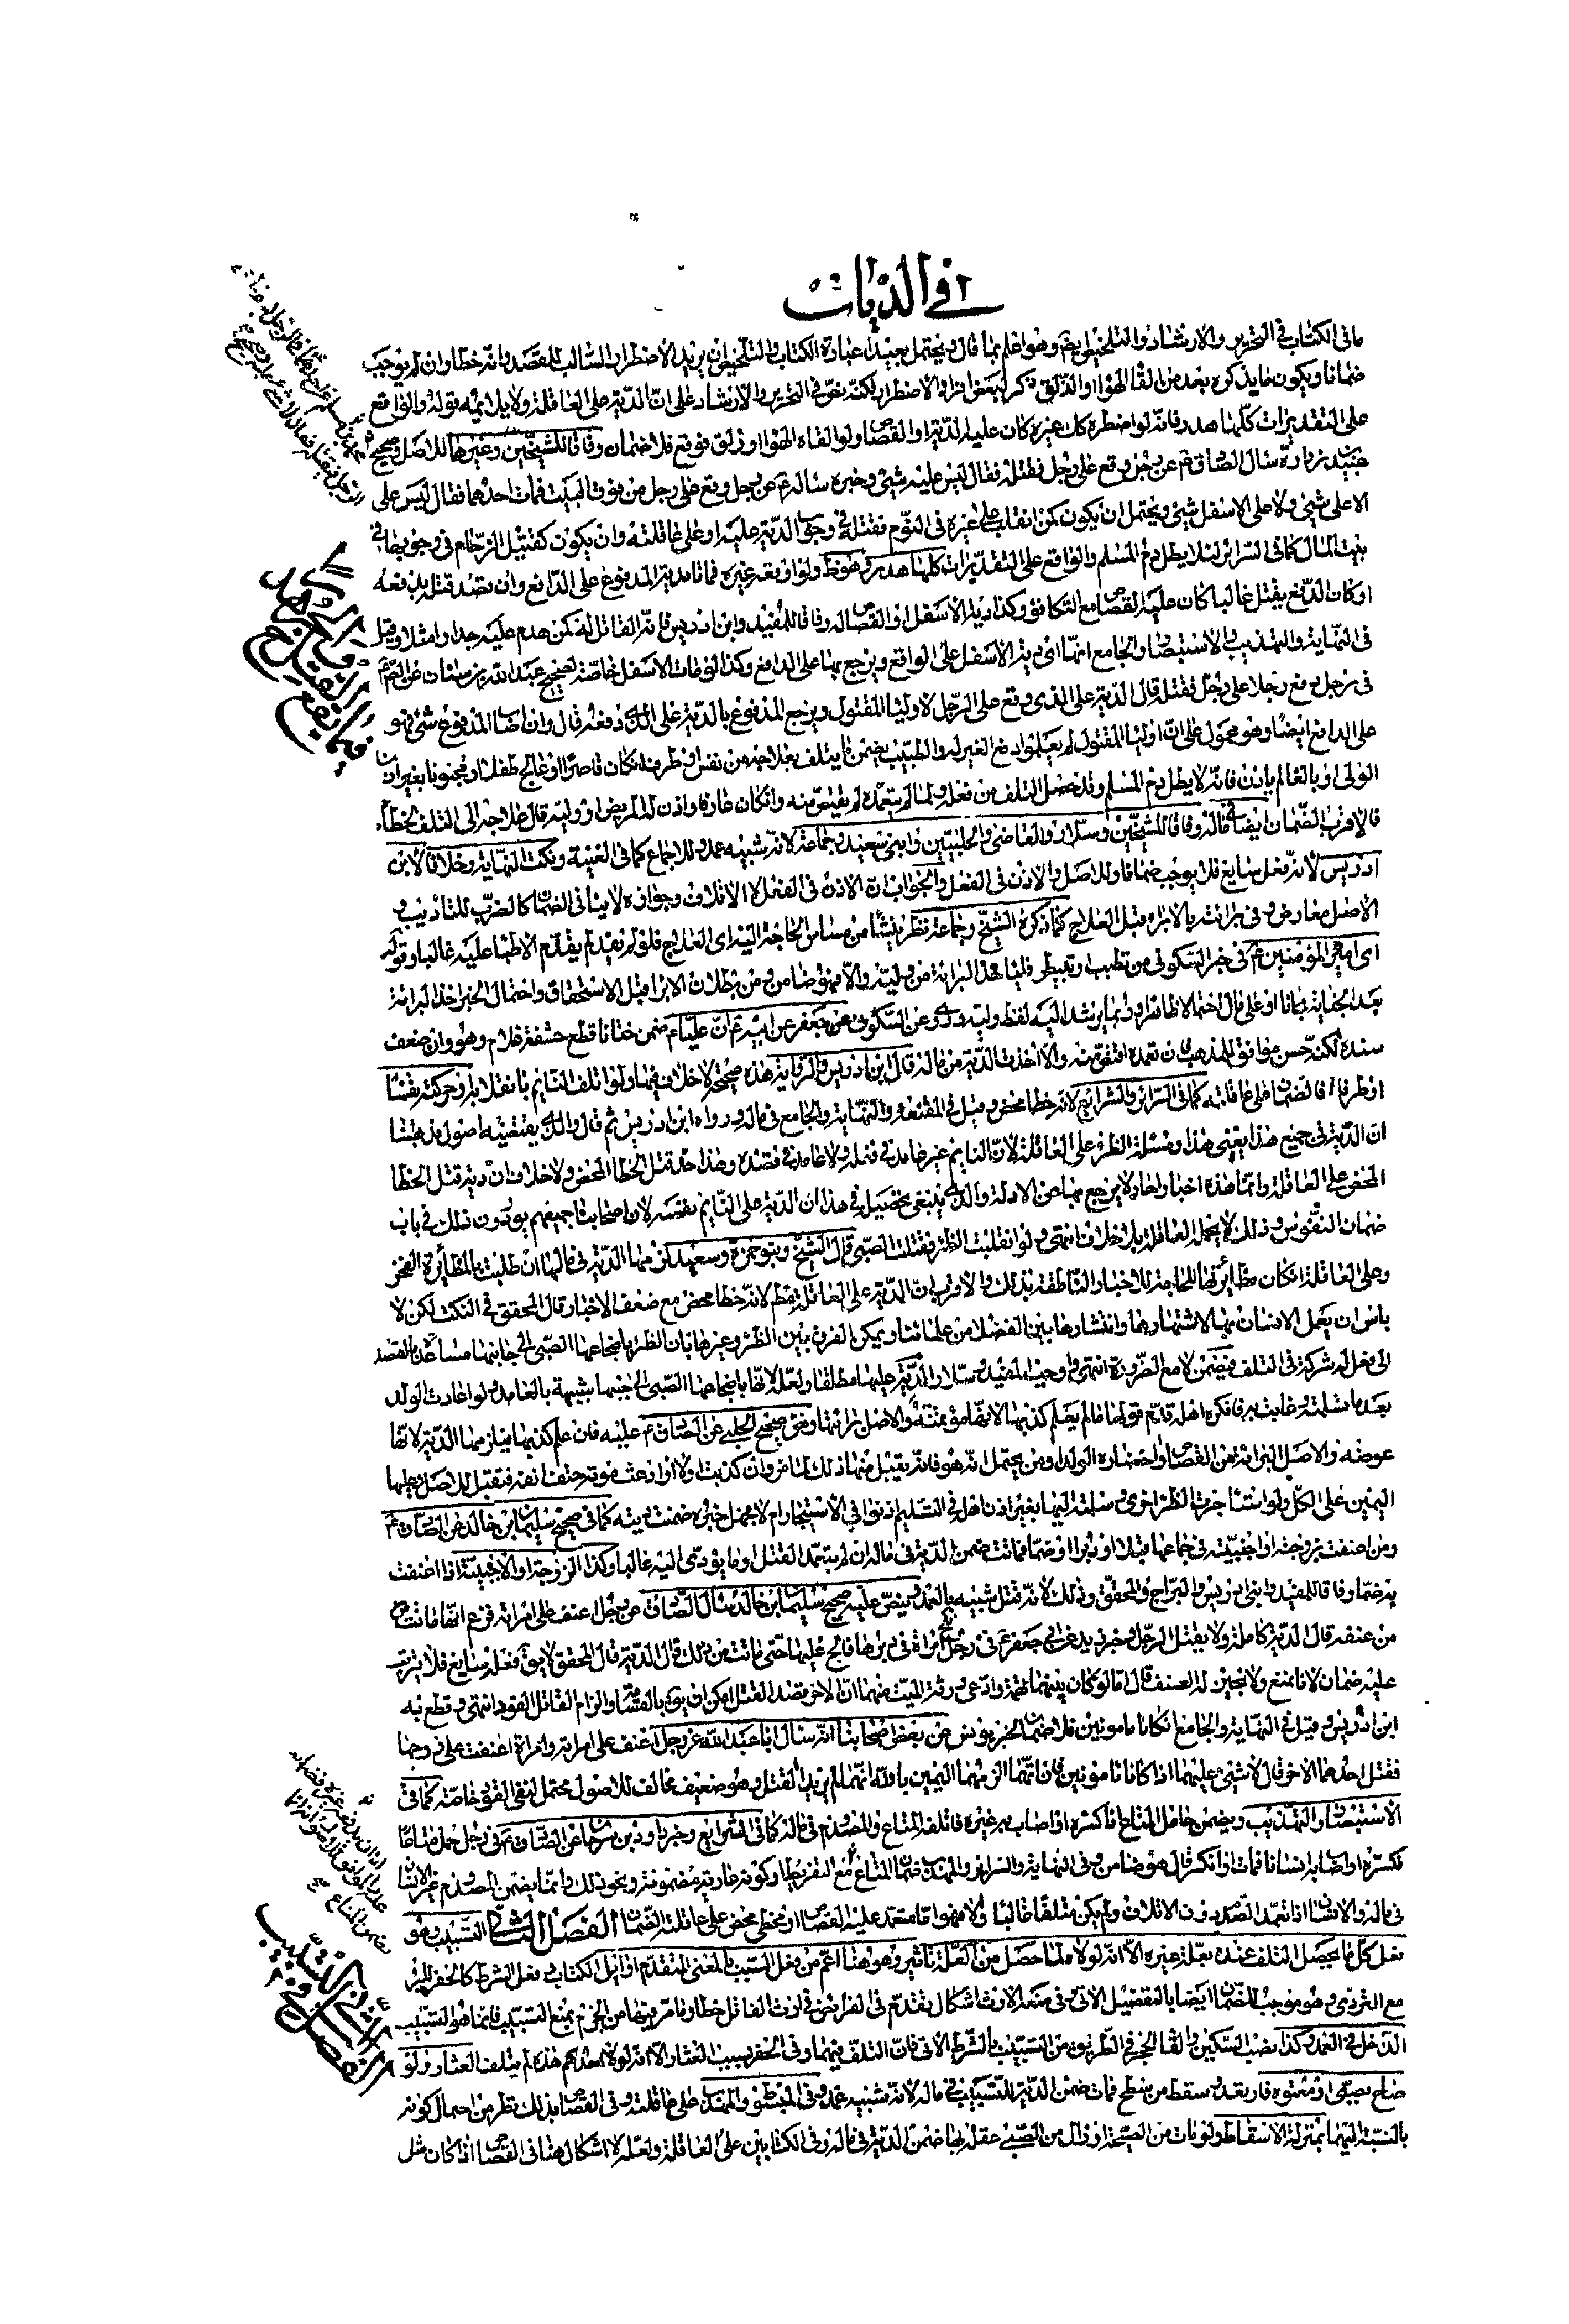 في الديات
ما في الكتاب في التحرير والارشاد والتلخيص ايضم وهو اعلم بما قال ويحتمل بعيدا عبارة الكتاب والتلخيص ان يريد الاضطرار السالب للقصد وانه خطأ وان لم يوجب
ضمانا ويكون ما يذكره بعد من القاء الهواء او الزلق ذكر لبعض افراد الاضطرار لكنه نص في التحرير والارشاد على ان الدية على العاقلة ولا يلائمه قوله والواقع
على التقديرات كلها هدر فانه لو اضطره كك غيره كان عليه الدية او القصاص ولو القاه الهواء او زلق فوقع فلا ضمان وفاقا للشيخين وغيرهما للاصل وصحيح
عبيد بن زرارة سال الصادق ع عن رجل وقع على رجل فقتله فقال ليس عليه شيء وخبره ساله ع عن رجل وقع على رجل من فوق البيت فمات احدهما فقال ليس على
الاعلى شيء ولا على الاسفل شيء ويحتمل ان يكون كمن انقلب على غيره في النوم فقتله في وجوب الدية عليه او على عاقلته وان يكون كقتيل الزحام في وجوبها في
بيت المال كما في السرائر لئلا يطل دم المسلم والواقع على التقديرات كلها هدر وهو ظ ولو اوقعه غيره فماتا فدية المدفوع على الدافع وان قصد قتله بدفعه
او كان الدفع يقتل غالبا كان عليه القصاص مع التكافؤ وكذا دية الاسفل او القصاص له وفاقا للمفيد وابن ادريس فانه القاتل له كمن هدم عليه جدارا مثلا وقيل
في النهاية والتهذيب والاستبصار والجامع انها اي دية الاسفل على الواقع ويرجع بها على الدافع وكذا لو مات الاسفل خاصة لصحيح عبد الله بن سنان عن الصم ع
في رجل دفع رجلا على رجل فقتله قال الدية على الذي وقع على الرجل لاولياء المقتول ويرجع المدفوع بالدية على الذي دفعه قال وان اصاب المدفوع شيء فهو
على الدافع ايضا وهو محمول على ان اولياء المقتول لم يعلموا دفع الغير له والطبيب يضمن ما يتلف بعلاجه من نفس او طرف ان كان قاصرا او عالج طفلا او مجنونا بغير اذن
الولي او بالغا لم ياذن فانه لا يطل دم المسلم وقد حصل التلف من فعله ولما لم يتعمده لم يقتص منه وان كان عارفا واذن له المريض او وليه قال علاجه الى التلف بخطأه
فالاقرب الضمان ايضا في ماله وفاقا للشيخين وسلار والقاضي والحلبيين وابني سعيد وجماعة لانه شبيه عمد وللاجماع كما في الغنية ونكت النهاية وخلافا لابن
ادريس لانه فعل سايغ فلا يوجب ضمانا وللاصل والاذن في الفعل والجواب ان الاذن في الفعل لا الاتلاف وجوازه لا ينافي الضمان كالضرب للتاديب و
الاصل معارض وفي برائته بالابراء قبل العلاج كما ذكره الشيخ وجماعة نظر ينشأ من مساس الحاجة اليه اي العلاج فلو لم يفد لم يقدم الاطباء عليه غالبا وقوله
اي امير المؤمنين ع في خبر السكوني من تطبب او تبيطر فلياخذ البرائة من وليه والا فهو ضامن ومن بطلان الابراء قبل الاستحقاق واحتمال الخبر اخذ البرائة
بعد الجناية مجانا او على مال احتمالا ظاهرا وربما يرشد اليه لفظ وليه وروى عن السكوني عن جعفر عن ابيه ع ان عليا ع ضمن ختانا قطع حشفة غلام وهو وان ضعف
سنده لكنه حسن موافق للمذهب فان تعمده اقتص منه والا اخذت الدية من ماله قال ابن ادريس والرواية هذه صحيحة لا خلاف فيها ولو اتلف النايم بانقلابه او حركته نفسا
او طرفا فالضمان على عاقلته كما في السرائر والشرايع لانه خطأ محض وقيل في المقنعة والنهاية والجامع في ماله ورواه ابن ادريس ثم قال والذي يقتضيه اصول مذهبنا
ان الدية في جميع هذا يعني هذا ومسئلة الظئر على العاقلة لان النايم غير عامد في فعله ولا عامد في قصده وهذا حد قتل الخطا المحض ولا خلاف ان دية قتل الخطا
المحض على العاقلة وانما هذه اخبار احاد لا يرجع بها عن الادلة والذي ينبغي تحصيله في هذا ان الدية على النايم نفسه لان اصحابنا جميعهم يوردون ذلك في باب
ضمان النفوس وذلك لا يحمله العاقلة بلا خلاف انتهى ولو انقلبت الظئر فقتلت الصبي قال الشيخ وبنو حمزة وسعيد لزمها الدية في مالها ان طلبت بالمظائرة الفخر
وعلى العاقلة ان كان مظائرتها للحاجة للاخبار الناطقة بذلك والاقرب ان الدية على العاقلة مط لانه خطا محض مع ضعف الاخبار قال المحقق في النكت لكن لا
باس ان يعمل الانسان بها لاشتهارها وانتشارها بين الفضلاء من علمائنا ويمكن الفرق بين الظئر وغيرها بان الظئر باضجاعها الصبي الى جانبها مساعدة بالقصد
الى فعل له شركة في التلف فيضمن لا مع الضرورة انتهى واوجب المفيد وسلار الدية عليها مطلقا ولعله لانها باضجاعها الصبي الى جنبها شبيهة بالعامد ولو اعادت الولد
بعد ما سلمته وغابت به فانكره اهله قدم قولها ما لم يعلم كذبها لانها مؤتمنة والاصل برائتها ونص صحيح الحلبي عن الصادق ع عليه فان علم كذبها فيلزمها الدية لانها
عوضه والاصل البرائة من القصاص او احضاره الولد او من يحتمل انه هو فانه يقبل منها ذلك لما مر وان كذبت اولا او ادعت موته حتف انفه فتقبل للاصل وعليها
اليمين على الكل ولو استاجرت الظئر اخرى وسلمته اليها بغير اذن اهله في التسليم اذنوا في الاستيجار ام لا فجهل خبره ضمنت ديته كما في صحيح سليمان بن خالد عن الصادق ع
ومن اعنف بزوجته او اجنبيته في جماعها قبلا او دبرا او ضما فماتت ضمن الدية في ماله ان لم يتعمد القتل او ما يؤدي اليه غالبا وكذا الزوجة او الاجنبية اذا اعنفت
به ضما وفاقا للمفيد وابني ادريس والبراج والمحقق وذلك لانه قتل شبيه بالعمد وينص عليه صحيح سليمان بن خالد سال الصادق عن رجل اعنف على امراته فزعم انها ماتت
من عنفه قال الدية كاملة ولا يقتل الرجل وخبر زيد عن ابي جعفر ع في رجل نكح امراة في دبرها فالح عليها حتى ماتت من ذلك قال الدية قال المحقق لا يق فعله سايغ فلا يترتب
عليه ضمان لانا نمنع ولا نجيز له العنف قال اما لو كان بينهما تهمة وادعى ورثة الميت منهما ان الاخر قصد القتل امكن ان يق بالقسامة والزام القاتل القود انتهى وقطع به
ابن ادريس وقيل في النهاية والجامع ان كانا مامونين فلا ضمان لخبر يونس عن بعض اصحابنا انه سال ابا عبد الله ع عن رجل اعنف على امراته او امراة اعنفت على زوجها
فقتل احدهما الاخر قال لا شيء عليهما اذا كانا مامونين فان اتهما الزمهما اليمين بالله انهما لم يريدا القتل وهو ضعيف مخالف للاصول محتمل لنفي القود خاصة كما في
الاستبصار والتهذيب ويضمن حامل المتاع اذا كسره او اصاب به غيره فاتلفه المتاع والمصدوم في ماله كما في الشرايع وخبر داود بن سرحان عن الصادق ع في رجل حمل متاعا
فكسره او اصاب به انسانا فمات او انكسر قال هو ضامن وفي النهاية والسرائر والمهذب ضمان المتاع مع التفريط او كونه عارية مضمونة ونحو ذلك وانما يضمن المصدوم من الانسان
في ماله والانسان اذا تعمد الصدم دون الاتلاف ولم يكن متلفا غالبا والا فهو اما متعمد عليه القصاص او مخطئ محض على عاقلته الضمان الفصل الثاني التسبيب وهو
فعل كل ما يحصل التلف عنده بعلة غيره الا انه لولاه لما حصل من العلة تاثير وهو هنا اعم من فعل السبب بالمعنى المتقدم اوايل الكتاب وفعل الشرط كالحفر للبئر
مع التردي وهو موجب للضمان ايضا بالتفصيل الاتي وفي منعه الارث اشكال يتقدم في الفرايض في ارث القاتل خطا وما مر فيها من الجزم بمنع التسبيب فانما هو التسبيب
الداخل في العمد وكذا نصب السكين والقاء الحجر في الطريق من التسبيب بالشرط الاتي فان التلف فيهما وفي الحفر بسبب العثار الا انه لولا احدى هذه لم يتلف العثار ولو
صاح بصبي او معتوه فارتعد وسقط من سطح فمات ضمن الدية للتسبيب في ماله لانه شبيه عمد وفي المبسوط والمهذب على عاقلته وفي القصاص بذلك نظر من احتمال كونه
بالنسبة اليهما بمنزلة الاسقاط ولو مات من الصيحة او زال من الصبي عقله بها ضمن الدية في ماله وفي الكتابين على العاقلة ولعله لا اشكال هنا في القصاص اذا كان مثل
الفصل الثاني في التسبيب